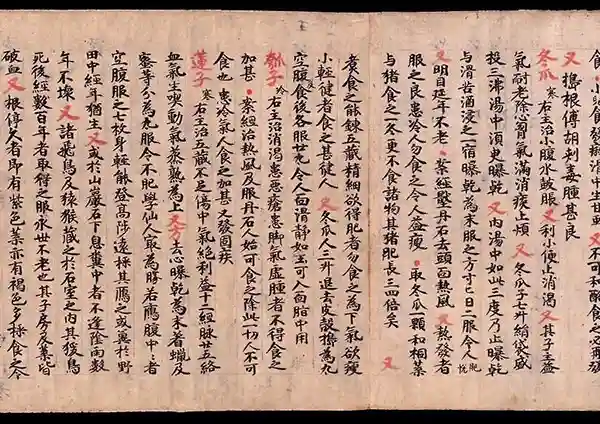 又不可和酥食之必霍亂
又擣根傅胡刺毒腫甚良
冬瓜寒右主治小腹水鼓脹又利小便止消渴又其子主益
氣耐老除心胸氣滿消痰止煩又冬瓜子七升絹袋盛
投三沸湯中須臾曝乾又内湯中如此三度乃止曝乾
与清苦酒浸之一宿曝乾為末服之方寸匕日二服令人肥悅
又明目延年不老案經壓丹石去頭面熱風又熱發者
服之良患冷人勿食之令人益瘦取冬瓜一顆和桐葉
与猪食之一冬更不食諸物其猪肥長三四倍矣又
煑食之能錬五藏精細欲得肥者勿食之為下氣欲瘦
小輕健者食之甚健人又冬瓜人三升退去皮殼擣為丸
空腹食後各服廿九令人面滑静如玉可入面脂中用
瓠子冷右主治消渴患惡瘡患脚氣虛腫者不得食之
加甚案經治熱風及服丹石人始可食之除此一切人不可
食也患冷氣人食之加甚又發固疾
蓮子寒右主治五藏不足傷中氣絶利益十二經脉廿五絡
血氣生喫動氣蒸熟為上又方去心曝乾為末著蠟及
蜜等分為丸服令不肥學仙人最為勝若鴈腹中者
空腹服之七枚身輕能登高陟遠採其鴈之或糞於野
田中經年猶生又或於山巖石下息糞中者不逢陰雨數
年不壞又諸飛鳥及猿猴藏之於石室之内其猨鳥
死後經數百年者取得之服永世不老也其子房及葉皆
破血又根停久者即有紫色葉亦有褐色多採食之令